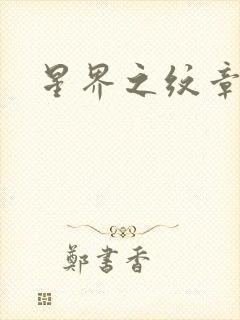 星界之纹章
鄭書香